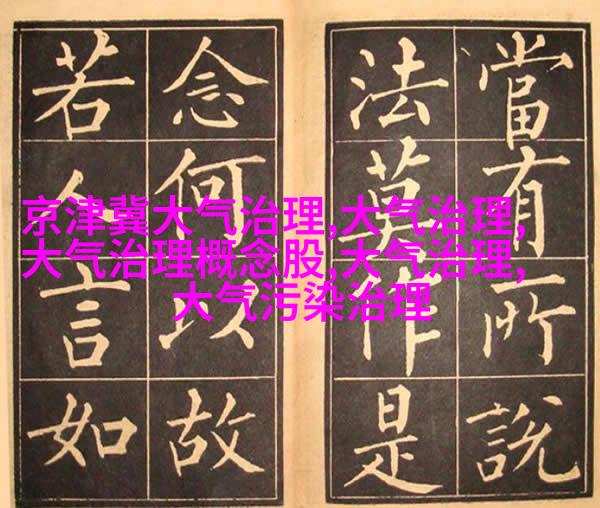 當有所說
法莫作是
念何以故
若人言如
京津冀大气治理,大气治理,
大气治理概念股,大气治理,
大气污染治理